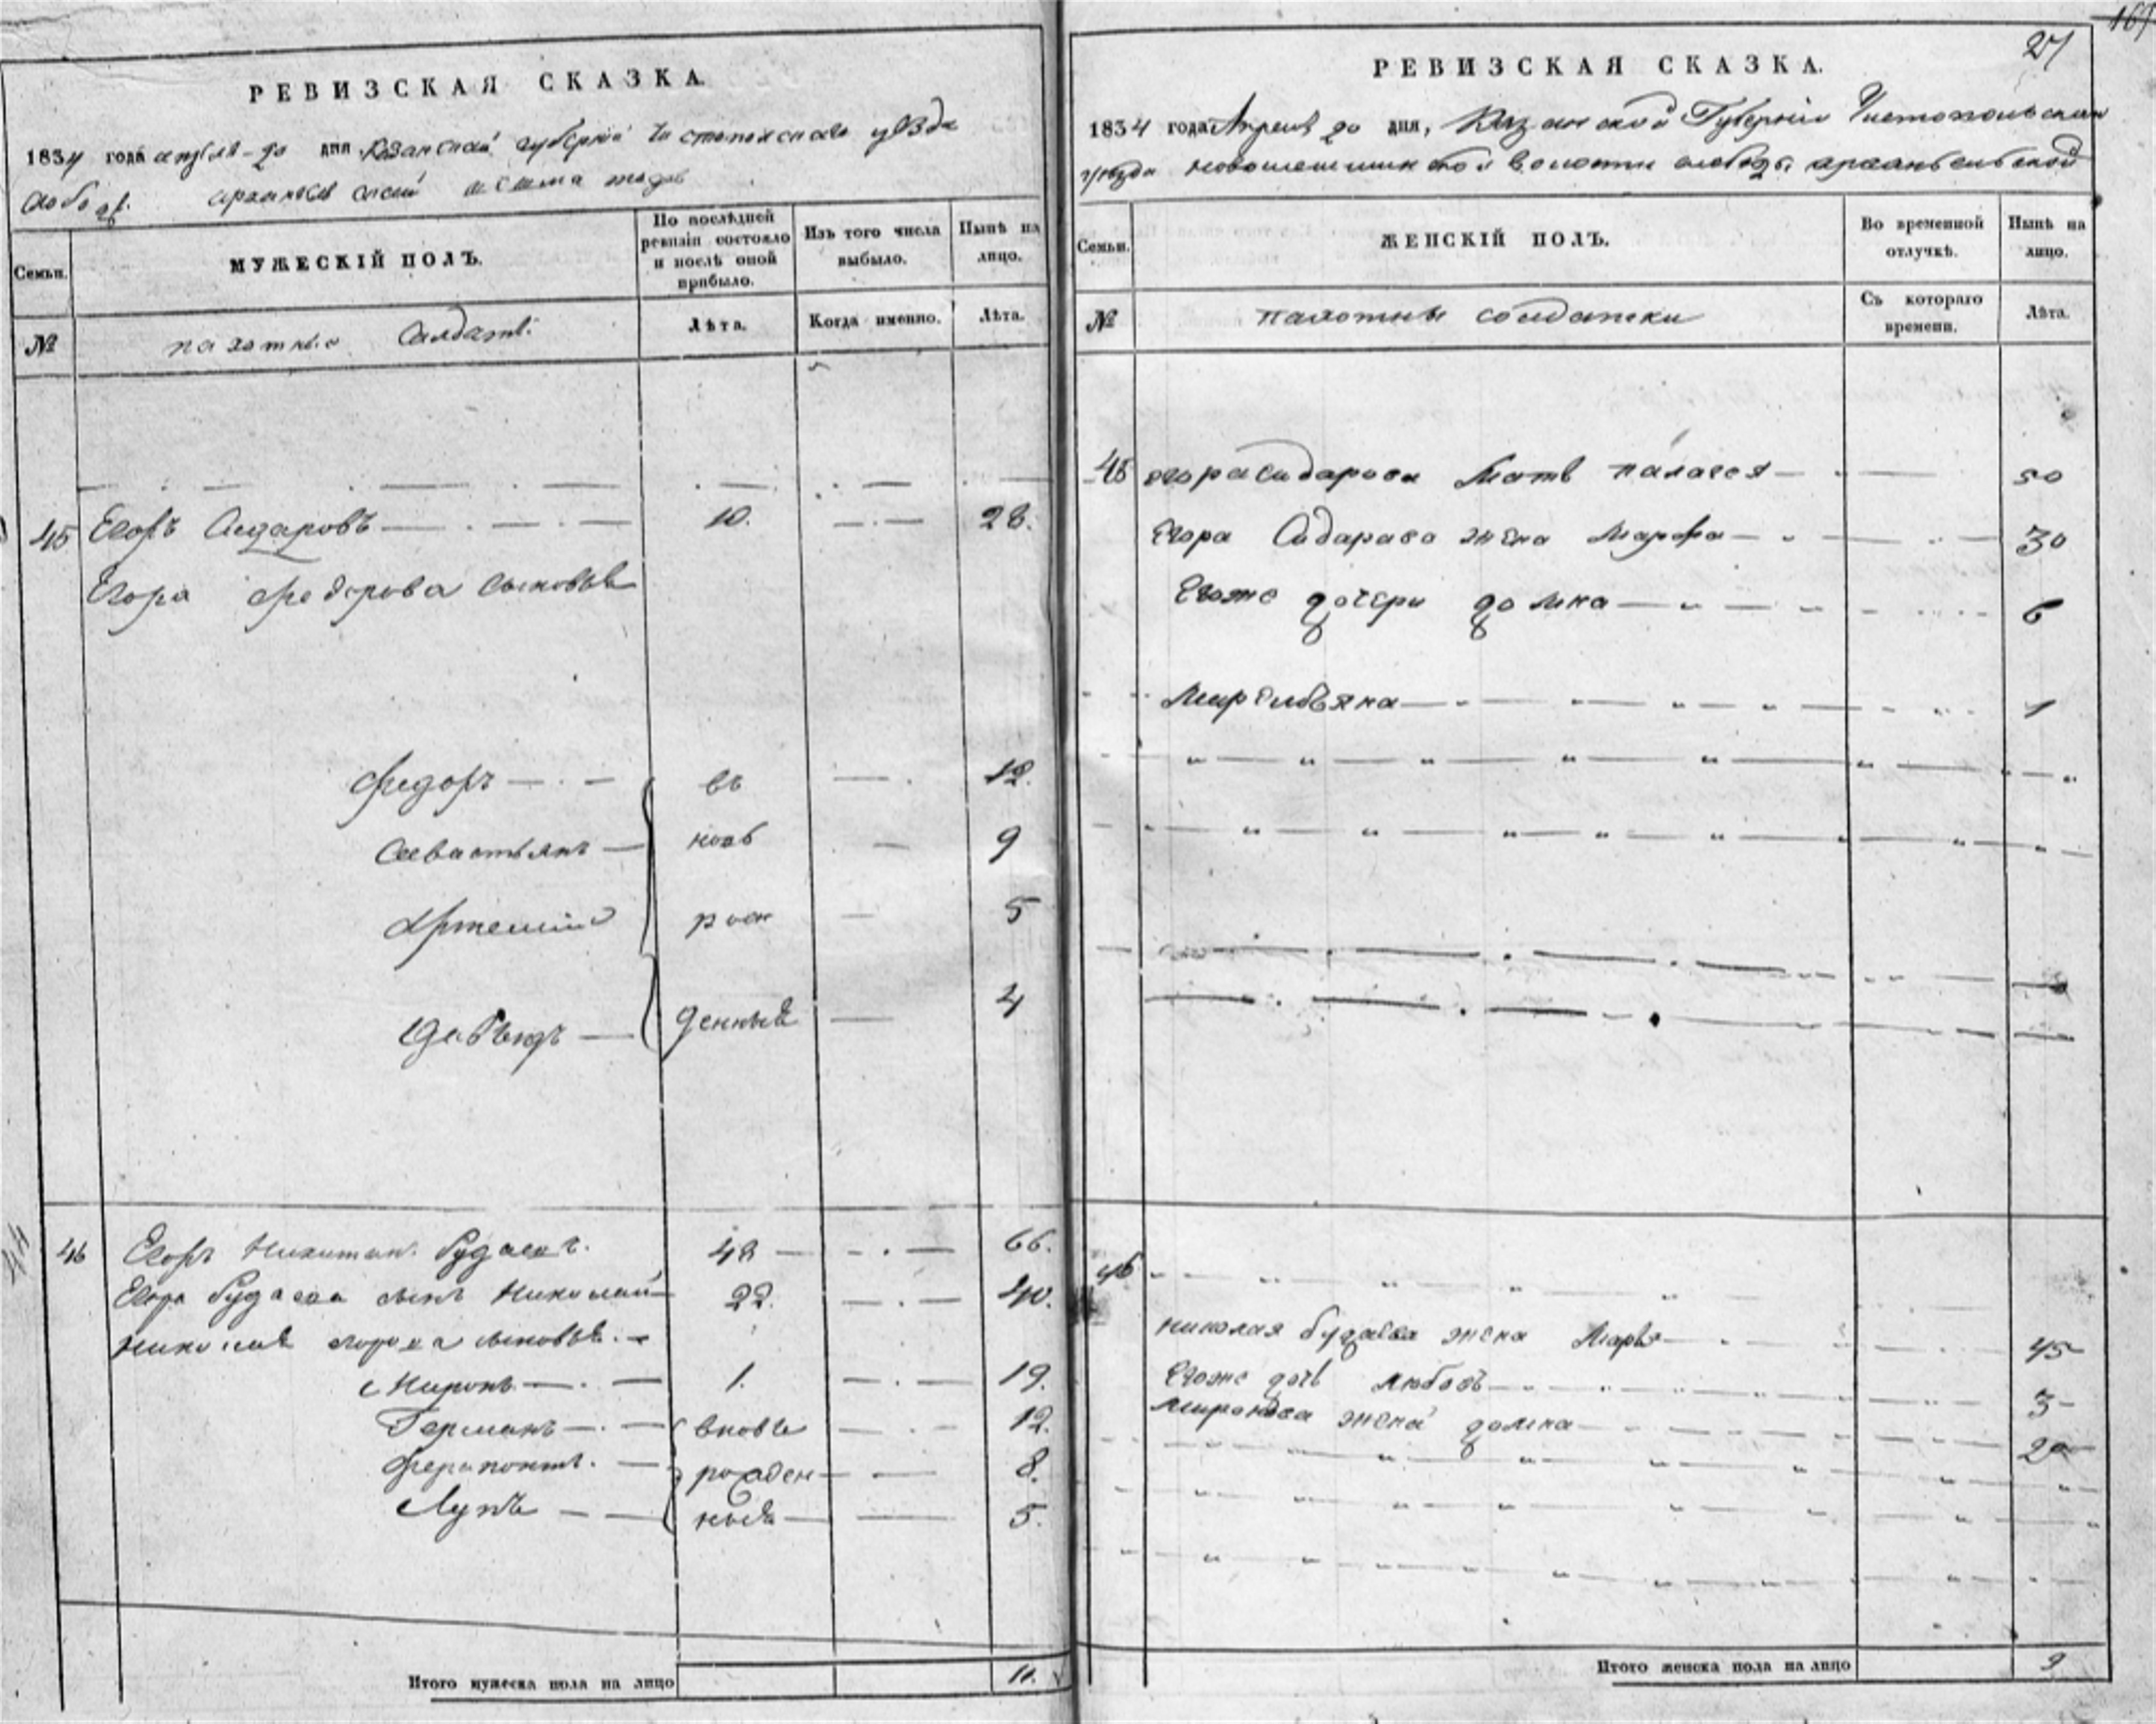 РЕВИЗСКАЯ СКАЗКА.
1834 года апреля 20 дня Казанской губернии Чистопольскаго уезда
слободы архангельской
Семьи.
МУЖЕСКІЙ ПОЛЪ.
По послѣдней ревизіи состояло и послѣ оной прибыло.
Изъ того числа выбыло.
Нынѣ на лицо.
№
пахотные Салдаты.
Лѣта.
Когда именно.
Лѣта.
45 Егоръ Сидаровъ 10. 28.
Егора Федорова сыновья
Федоръ въ 12.
Севастьянъ новь 9
Артемий рож 5
Давыдъ денныя 4
44
46 Егоръ Никитин Будаевъ. 48 66.
Егора Будаева сынъ Николай 22. 40.
Николая Егорова сыновья.
Миронъ 1. 19.
Германъ вновь 12.
Ферапонтъ. рожден 8.
Лупъ ныя 5.
Итого мужеска пола на лицо 11.
169
27
РЕВИЗСКАЯ СКАЗКА.
1834 года Апреля 20 дня, Казанской Губерніи Чистопольскаго
уезда новошешминской волости слободы архангельской
Семьи.
ЖЕНСКІЙ ПОЛЪ.
Во временной отлучкѣ.
Нынѣ на лицо.
№
пахотные солдатски
Съ котораго времени.
Лѣта.
45 Егора Сидарова мать Палагея 50
Егора Сидарова жена Марфа 30
Егоже дочери домна 6
1
46
Николая Будаева жена Марья 45
Егоже дочь любовь 3
Миронова жена домна 20
Итого женска пола на лицо